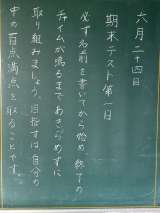 六月二十四日
期末テスト第一日
必ず名前を書いてから始め終了の
チャイムが鳴るまであきらめずに
取り組みましょう。目指すは自分の
中の百点満点を取ることです。